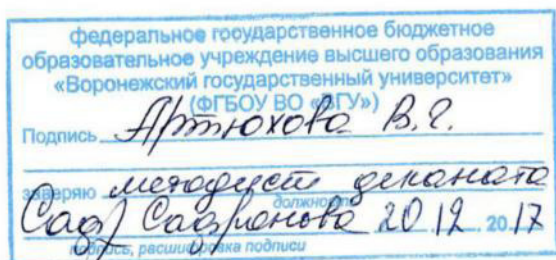 федеральное государственное бюджетное
образовательное учреждение высшего образования
«Воронежский государственный университет»
(ФГБОУ ВО «ВГУ»)
Подпись Артюхова В.Г.
заверяю методист деканата
должность
Саф Сафонова 20.12. 2017
подпись, расшифровка подписи